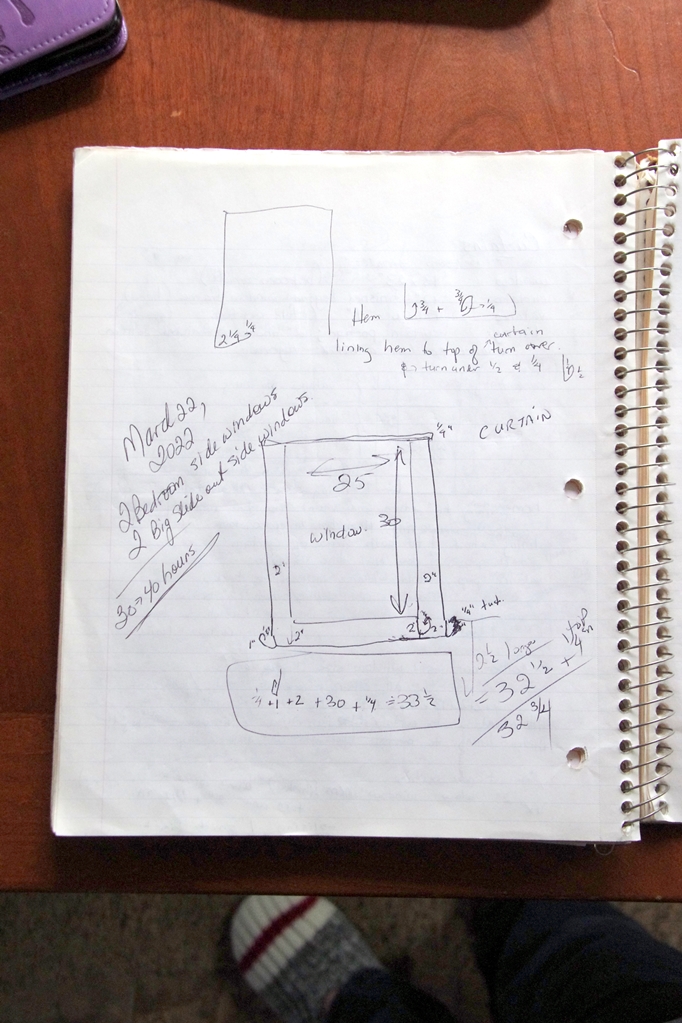 2 1/4 1/4
Hem 3/4 + 3/4 1/4
curtain
lining hem to top of turn over.
turn under 1/2 1/4
1/2
March 22,
2022
2 Bedroom side windows
2 Big Slide out side windows.
30→40 hours
1/4"
CURTAIN
25
window. 30
2" 2"
1" 2" 2 2" 1/4" tuck.
1/4 +1 +2 +30 + 1/4 = 33 1/2
2 1/2 longer
= 32 1/2 + 1/4 top
32 3/4